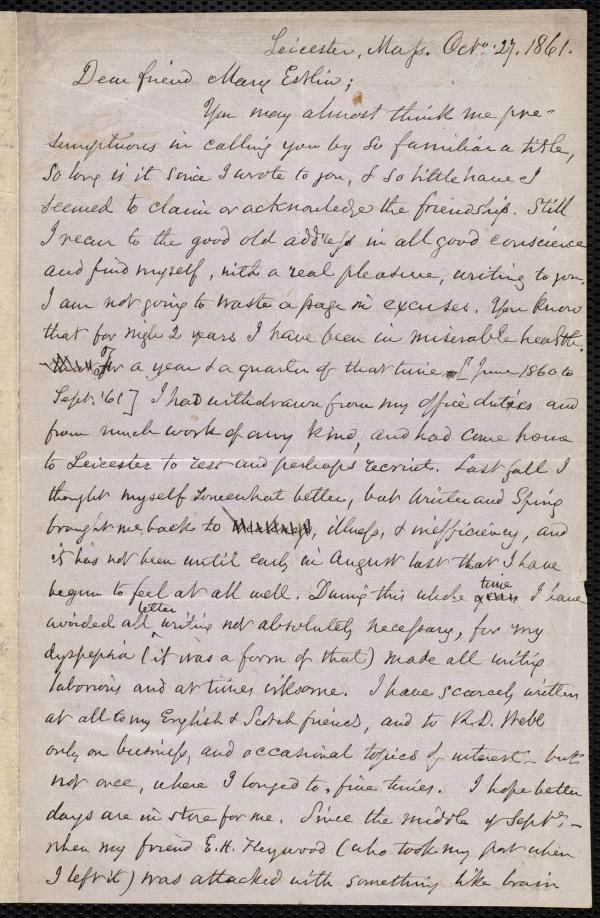 Leicester, Mass. Octo. 27. 1861.
Dear friend Mary Estlin;
You may almost think me pre-
sumptuous in calling you by so familiar a title,
so long is it since I wrote to you, & so little have I
seemed to claim or acknowledge the friendship. Still
I recur to the good old address in all good conscience
and find myself, with a real pleasure, writing to you.
I am not going to waste a page in excuses. You know
that for nigh 2 years I have been in miserable health.
For a year & a quarter of that time [June 1860 to
Sept. '61] I had withdrawn from my office duties and
from much work of any kind, and had come home
to Leicester to rest and perhaps recruit. Last fall I
thought myself somewhat better, but Winter and Spring
brought me back to illness, & inefficiency, and
it has not been until early in August last that I have
begun to feel at all well. During this whole time I have
avoided all letter writing not absolutely necessary, for my
dyspepsia (it was a form of that) made all writing
laborious and at times irksome. I have scarcely written
at all to my English & Scotch friends, and to R. D. Webb
only on business, and occasional topics of interest – but
not once, where I longed to, five times. I hope better
days are in store for me. Since the middle of Sept. –
when my friend E. H. Heywood (who took my post when
I left it) was attacked with something like brain